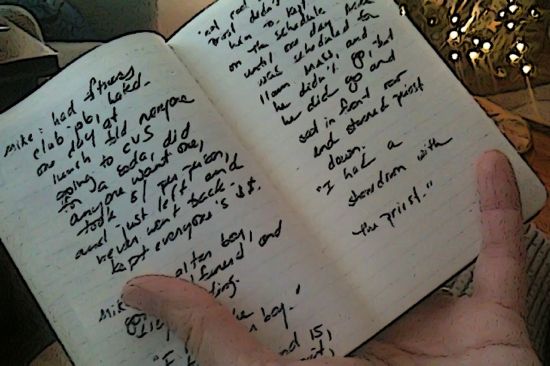 mike: had fitness
club job, hated.
one day at
lunch told everyone
going to CVS
for a soda, did
anyone want one,
took $1 per person,
and just left and
never went back.
kept everyone's $.
mik altar boy,
funeral and
ding.
boy."
"I nd 15,
"cat
priest didn't
him to
on the schedule
until one day mike
was scheduled for
11am mass, and
he didn't go. but
he did go and
sat in front row
and stared priest
down.
"I had a
showdown with
the priest."